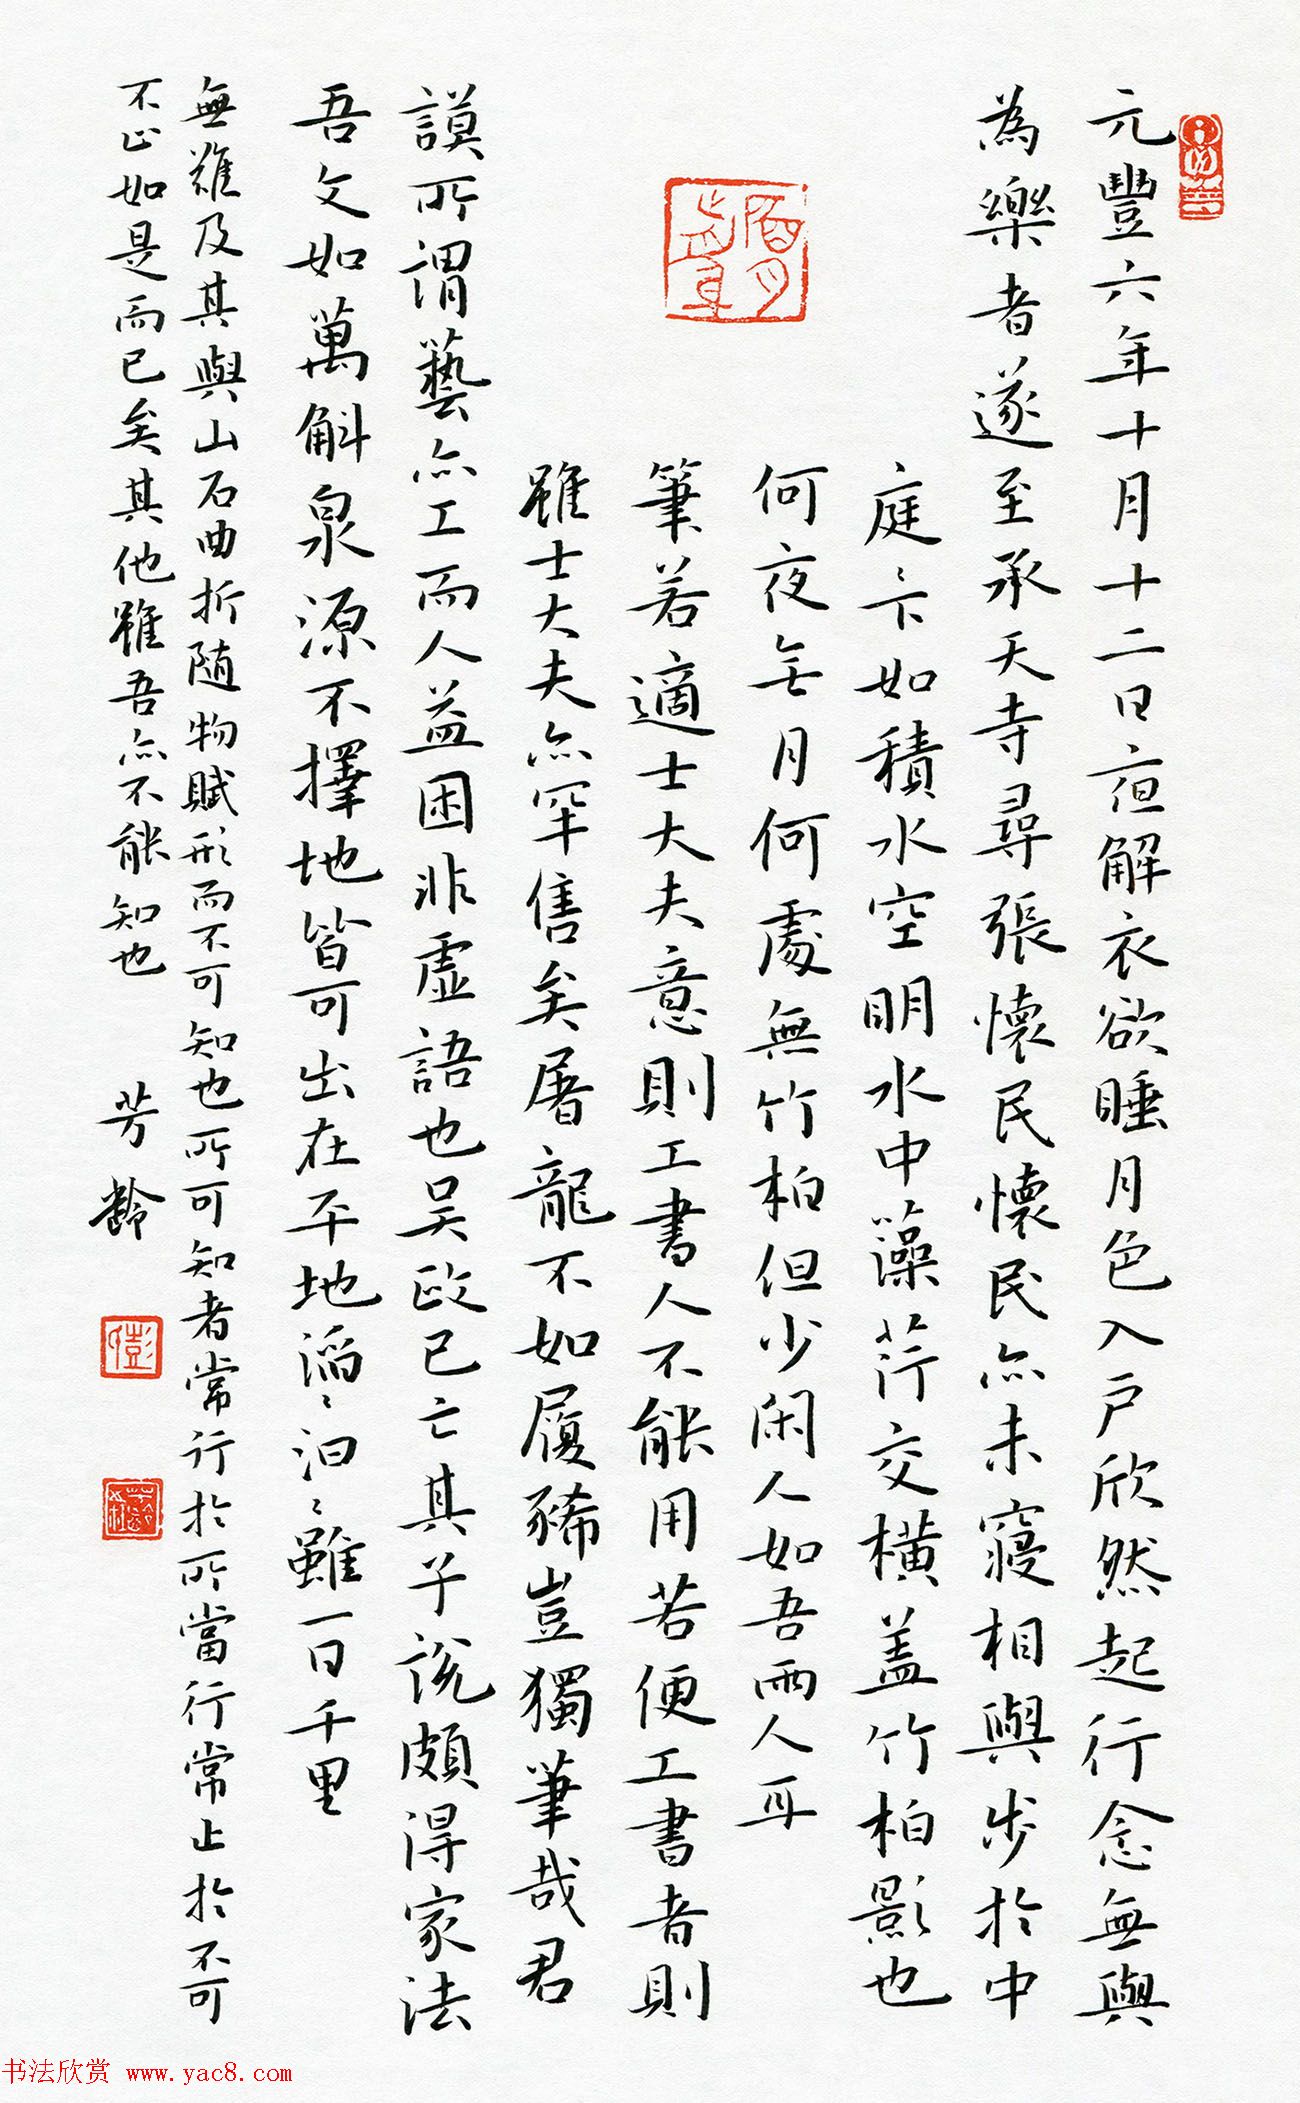 元豐六年十月十二日夜解衣欲睡月色入戶欣然起行念無與
為樂者遂至承天寺尋張懷民懷民亦未寢相與步於中
庭庭下如積水空明水中藻荇交橫蓋竹柏影也
何夜無月何處無竹柏但少閑人如吾兩人耳
筆若適士大夫意則工書人不能用若便工書者則
雖士大夫亦罕售矣屠龍不如履豨豈獨筆哉君
謨所謂藝亦工而人益困非虛語也吳政已亡其子說頗得家法
吾文如萬斛泉源不擇地皆可出在平地滔滔汩汩雖一日千里
無難及其與山石曲折隨物賦形而不可知也所可知者常行於所當行常止於不可
不止如是而已矣其他雖吾亦不能知也
芳齡
书法欣赏 www.yac8.com